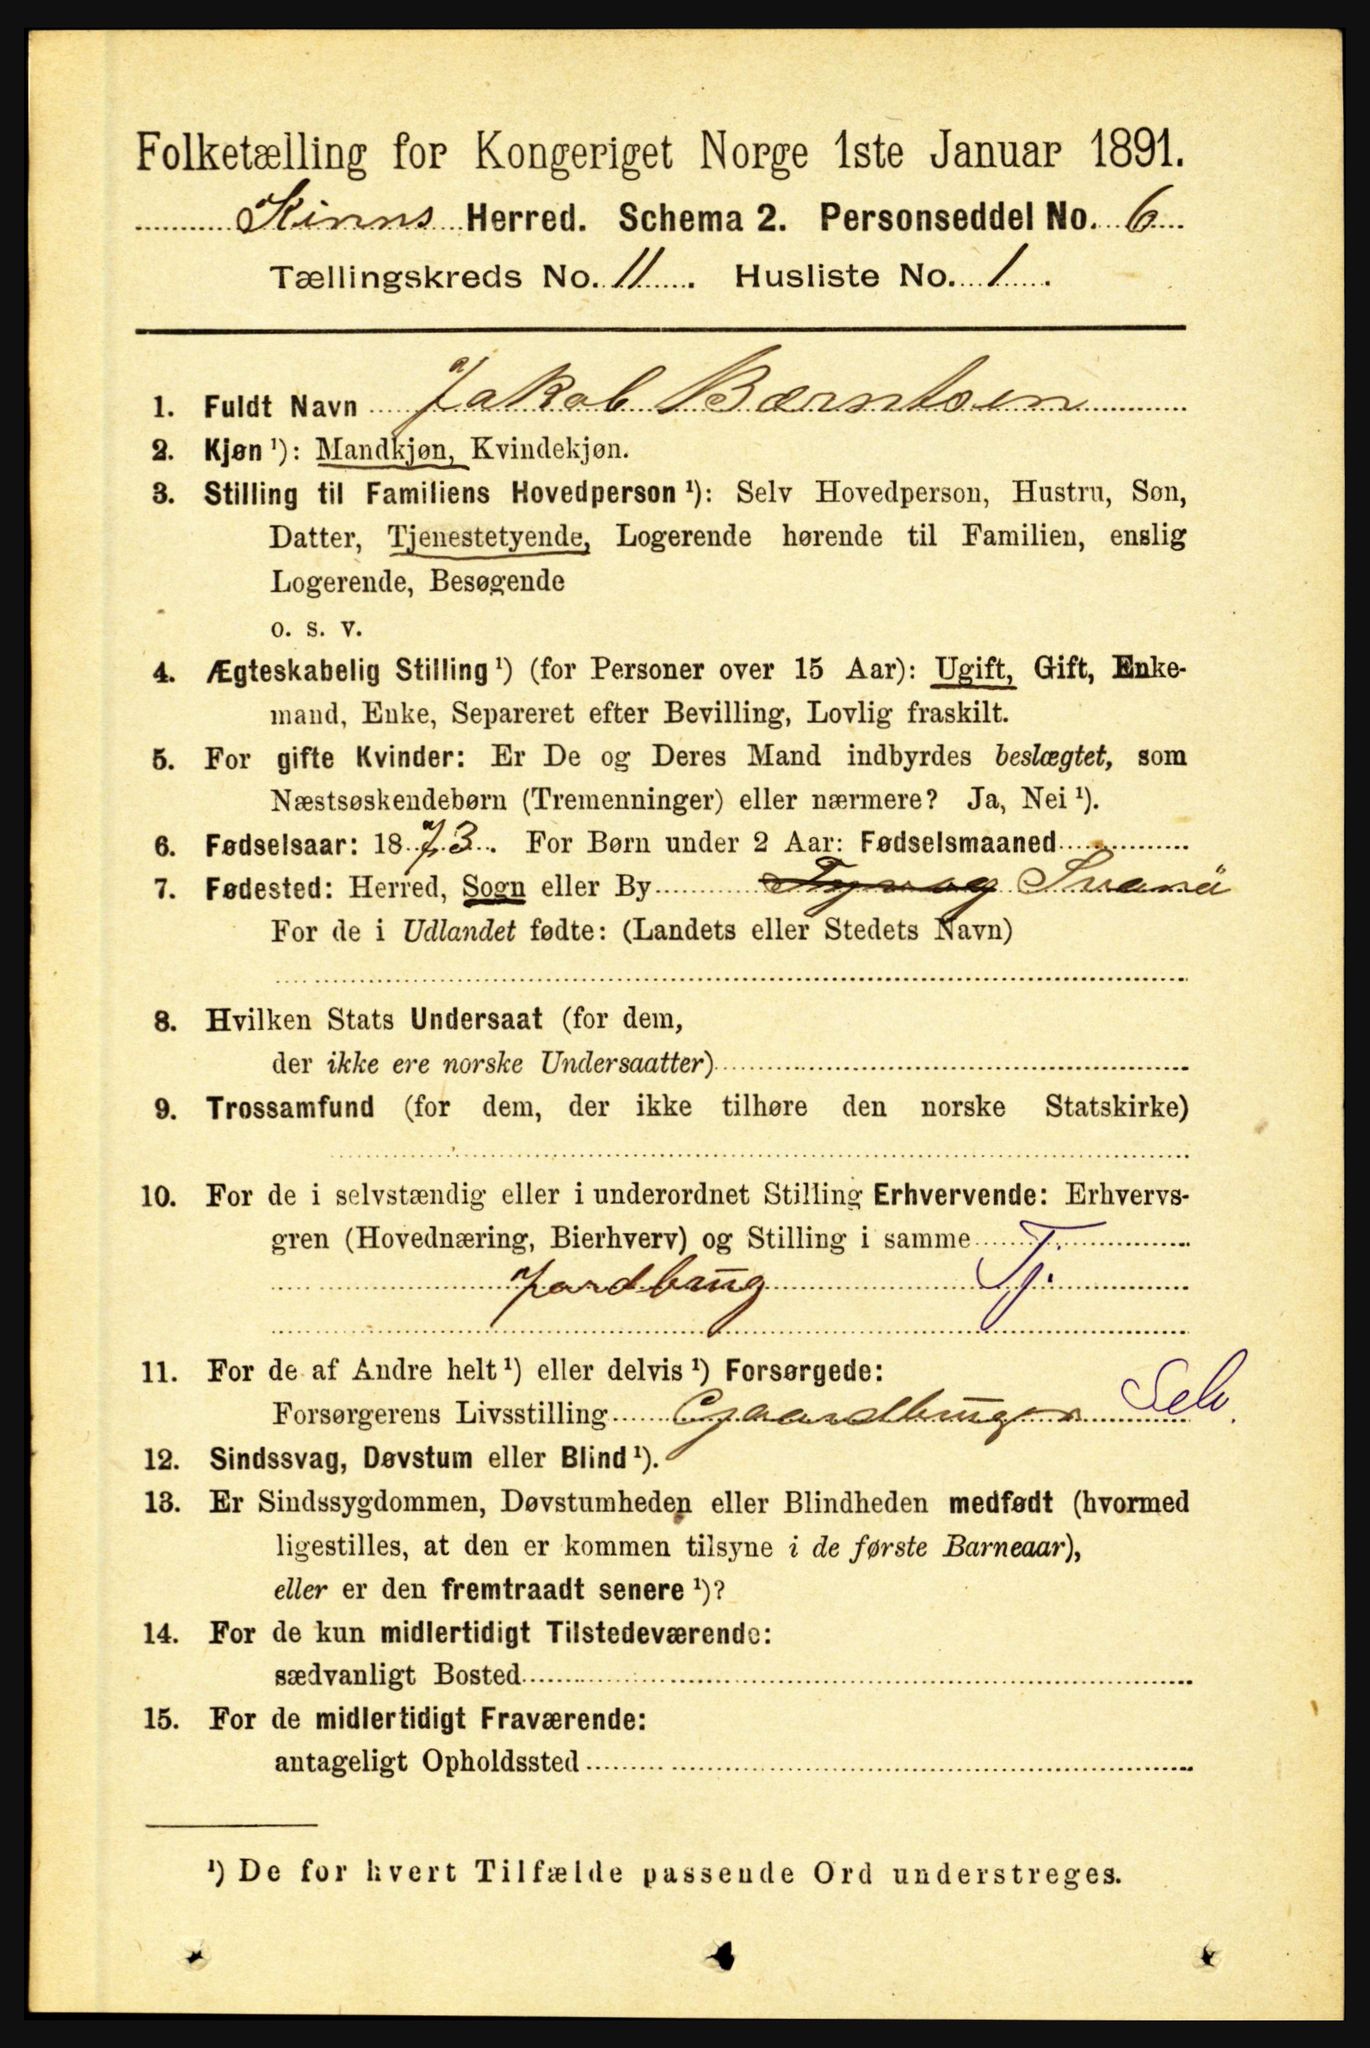 Folketælling for Kongeriget Norge 1ste Januar 1891.
Kinns Herred. Schema 2. Personseddel No. 6
Tællingskreds No. 11. Husliste No. 1.
1. Fuldt Navn Jakob Bærntsen
2. Kjøn ¹): Mandkjøn, Kvindekjøn.
3. Stilling til Familiens Hovedperson ¹): Selv Hovedperson, Hustru, Søn,
Datter, Tjenestetyende, Logerende hørende til Familien, enslig
Logerende, Besøgende
o. s. v.
4. Ægteskabelig Stilling ¹) (for Personer over 15 Aar): Ugift, Gift, Enke-
mand, Enke, Separeret efter Bevilling, Lovlig fraskilt.
5. For gifte Kvinder: Er De og Deres Mand indbyrdes beslægtet, som
Næstsøskendebørn (Tremenninger) eller nærmere? Ja, Nei ¹).
6. Fødselsaar: 1873. For Børn under 2 Aar: Fødselsmaaned
7. Fødested: Herred, Sogn eller By Svanø
For de i Udlandet fødte: (Landets eller Stedets Navn)
8. Hvilken Stats Undersaat (for dem,
der ikke ere norske Undersaatter)
9. Trossamfund (for dem, der ikke tilhøre den norske Statskirke)
10. For de i selvstændig eller i underordnet Stilling Erhvervende: Erhvervs-
gren (Hovednæring, Bierhverv) og Stilling i samme
Jordbrug Tj.
11. For de af Andre helt ¹) eller delvis ¹) Forsørgede:
Forsørgerens Livsstilling Gaardbruger Selv.
12. Sindssvag, Døvstum eller Blind ¹).
13. Er Sindssygdommen, Døvstumheden eller Blindheden medfødt (hvormed
ligestilles, at den er kommen tilsyne i de første Barneaar),
eller er den fremtraadt senere ¹)?
14. For de kun midlertidigt Tilstedeværende:
sædvanligt Bosted
15. For de midlertidigt Fraværende:
antageligt Opholdssted
¹) De for hvert Tilfælde passende Ord understreges.